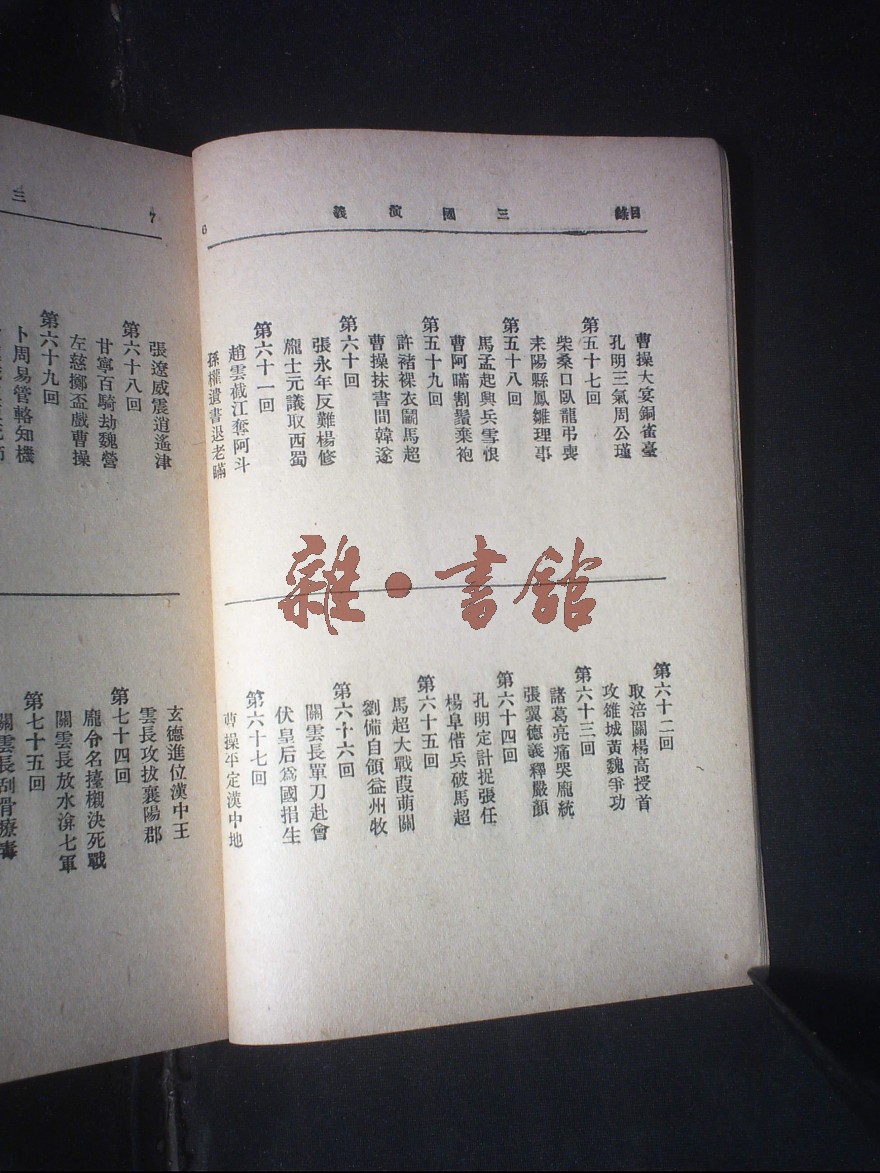 目錄
三國演義
6
曹操大宴銅雀臺
孔明三氣周公瑾
第五十七回
柴桑口臥龍弔喪
耒陽縣鳳雛理事
第五十八回
馬孟起興兵雪恨
曹阿瞞割鬚棄袍
第五十九回
許褚裸衣鬬馬超
曹操抹書間韓遂
第六十回
張永年反難楊修
龐士元議取西蜀
第六十一回
趙雲截江奪阿斗
孫權遺書退老瞞
第六十二回
取涪關楊高授首
攻雒城黃魏爭功
第六十三回
諸葛亮痛哭龐統
張翼德義釋嚴顏
第六十四回
孔明定計捉張任
楊阜借兵破馬超
第六十五回
馬超大戰葭萌關
劉備自領益州牧
第六十六回
關雲長單刀赴會
伏皇后爲國捐生
第六十七回
曹操平定漢中地
雜·書館
三
7
張遼威震逍遙津
第六十八回
甘寧百騎劫魏營
左慈擲盃戲曹操
第六十九回
卜周易管輅知機
玄德進位漢中王
雲長攻拔襄陽郡
第七十四回
龐令名擡櫬決死戰
關雲長放水渰七軍
第七十五回
關雲長刮骨療毒